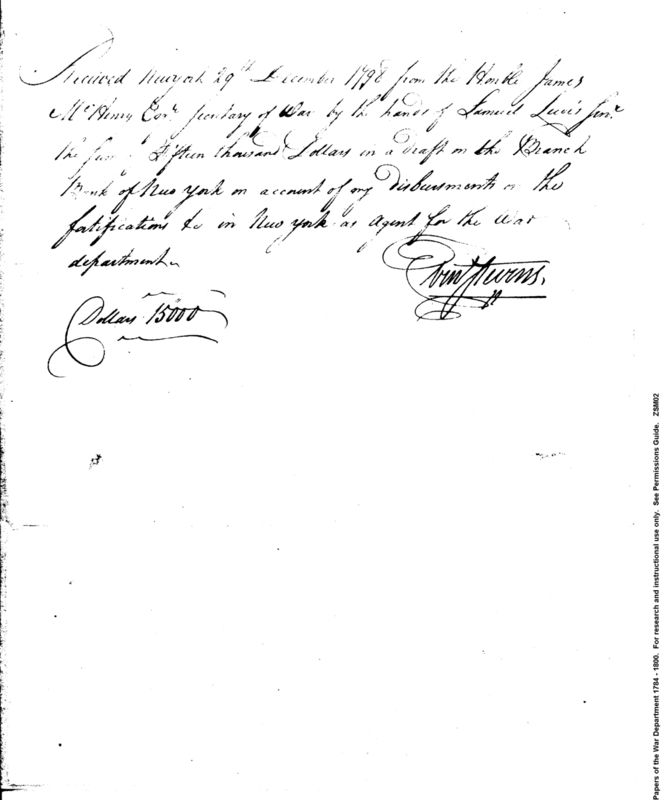 Received New York 29th December 1798 from the Honble James
McHenry Esqr. Secretary of War by the hands of Samuel Lewis Senr.
the Sum of Fifteen thousand Dollars in a draft on the Branch
Bank of New York on account of my disbursments on the
fortifications &c in New York as Agent for the War
department
Ebenr Stevens.
Dollars 15000
Papers of the War Department 1784 - 1800. For research and instructional use only. See Permissions Guide. ZSM02